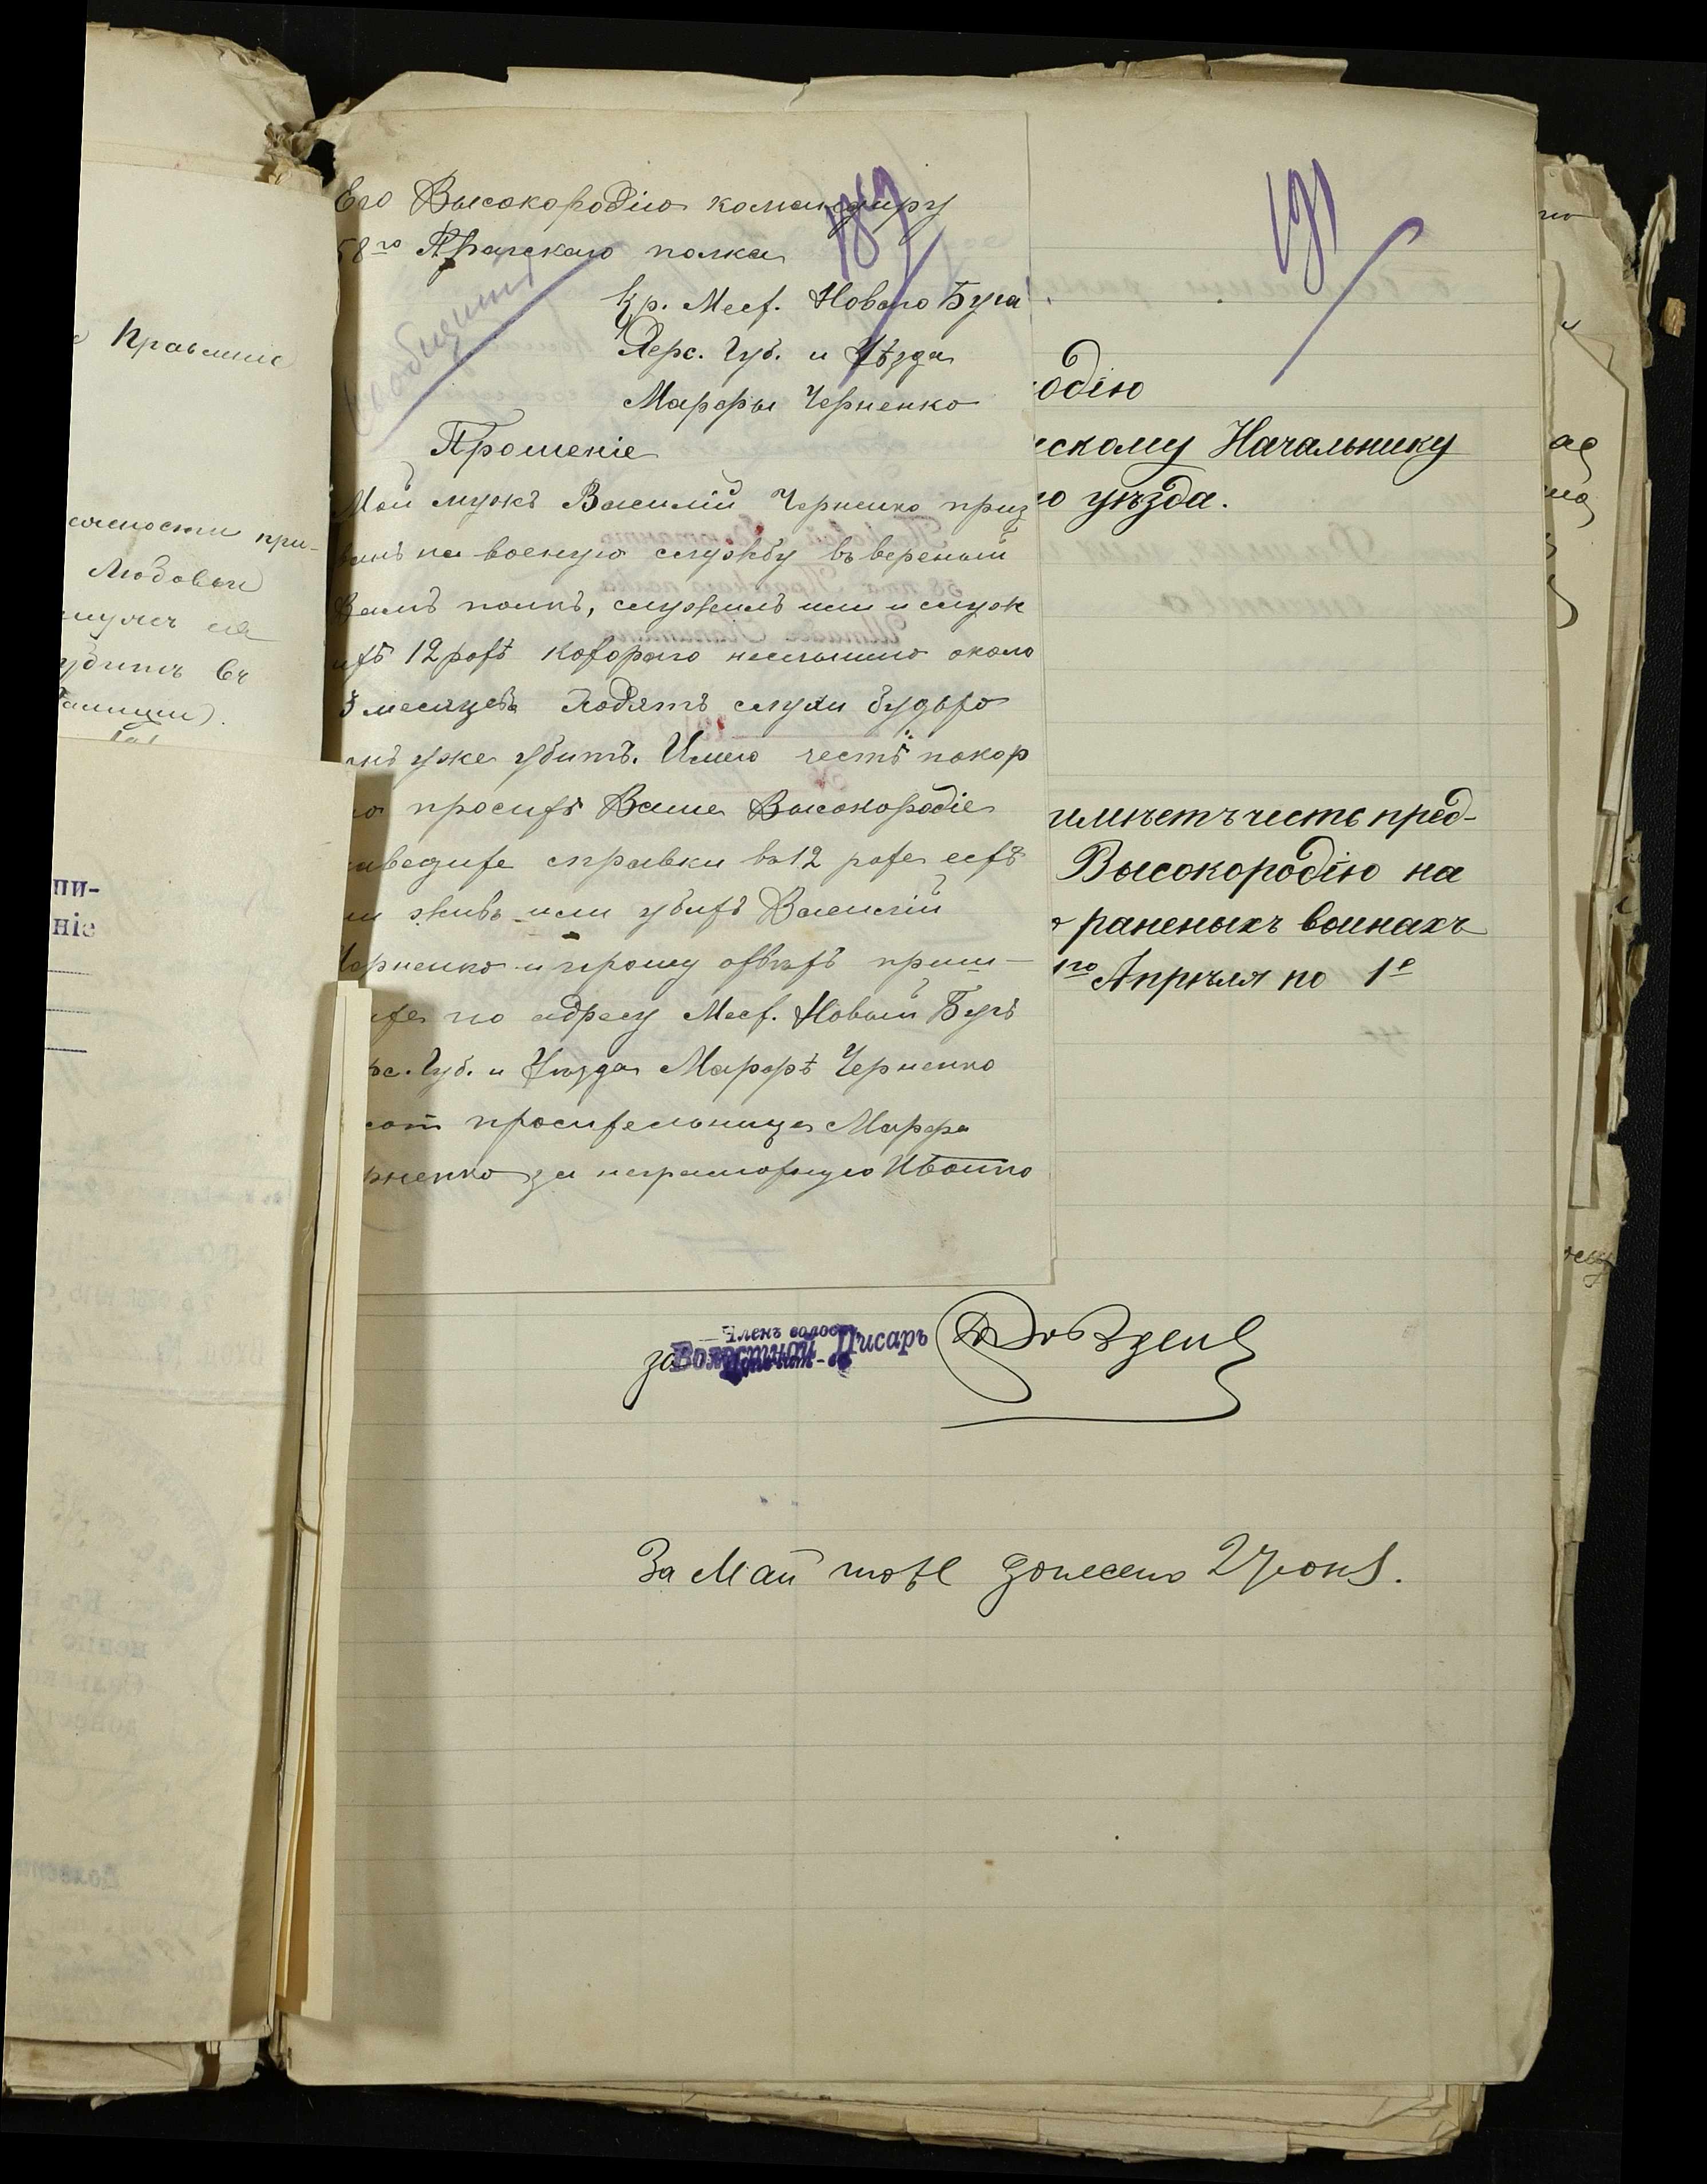 Его Высокородію командиру
58го Прагскаго полка
Кр. Мест. Новаго Буга
Херс. Губ. и Уѣзда
Марфы Черненко
Прошеніе
Мой мужъ Василій Черненко приз
ванъ на военую службу въ вереный
Вамъ полкъ, служилъ или и служ
итъ 12 ротѣ которого неслышно около
месяцевъ Ходятъ слухи будьто
онъ уже убитъ. Имею честь покор
но просить Ваше Высокородіе
наведите справки въ 12 роте есть
ли живъ или убитъ Василій
Черненко и прошу отвѣтъ приш-
ите по адресу Мест. Новый Бугъ
Херс. Губ. и Уѣзда Марфѣ Черненко
просительница Марфа
Черненко за неграмотную
189
Сообщить
191
одію
скому Начальнику
го уѣзда.
имѣетъ честь пред-
Высокородію на
раненыхъ воинахъ
1го Апрѣля по 1е
за Волостной Писарь
Членъ волост
За Май тоже донесено 2 Июня.
Правленіе
при-
Людовы
убитъ въ
Галиціи).
пи-
ніе